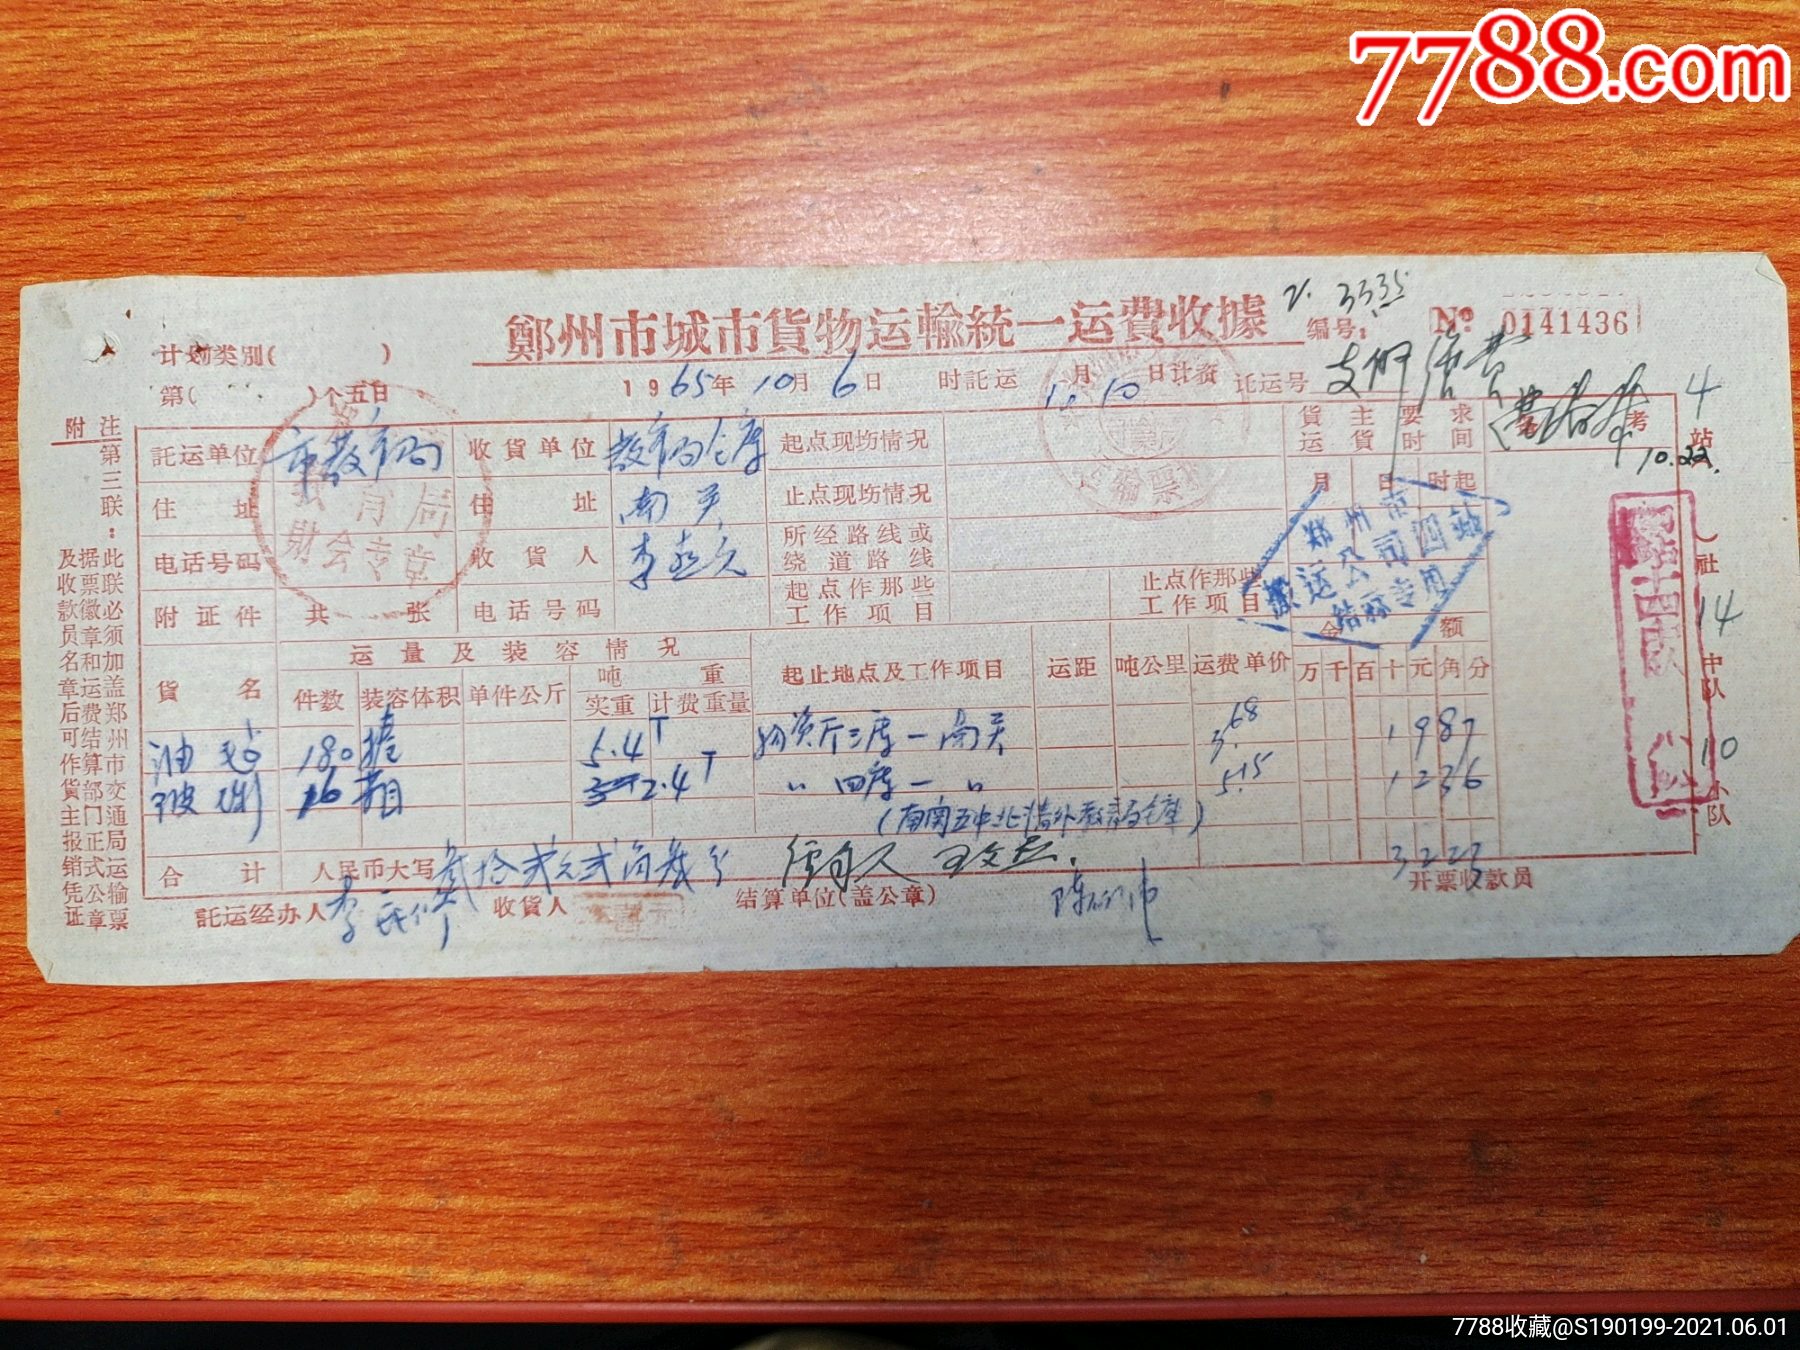 7788.com
鄭州市城市貨物运輸統一运費收據
2. 3335
编号:
№ 0141436
计划类别( )
第( )个五日
1965年10月6日
时託运
月10日计资
託运号
支付运费
10.22.
4
站
社
14
中队
10
小队
附注
第三联:
此联必须加盖郑州市交通局运输票
据票徽章和运费结算部门正式公章
及收款员名章后可作货主报销凭证
託运单位
市教育局
收货单位
教育局仓库
起点现场情况
貨主要求
运貨时间
考
住址
住址
南关
止点现场情况
月日时起
电话号码
收貨人
李喜元
所经路线或
绕道路线
附证件
共 张
电话号码
起点作那些
工作项目
止点作那些
工作项目
教育局
財会专章
运輸票
郑州市
搬运公司四站
结算专用
貨名
运量及装容情况
起止地点及工作项目
运距
吨公里
运费单价
金额
件数
装容体积
单件公斤
吨重
实重
计费重量
万千百十元角分
油毡
180捲
5.4T
物资厅三库一南关
3.68
1987
玻璃
16箱
2.4T
〃 四库一 〃
5.15
1236
合计
人民币大写
叁拾贰元贰角叁分
经手人
3223
託运经办人
收貨人
结算单位(盖公章)
开票收款员
7788收藏@S190199-2021.06.01